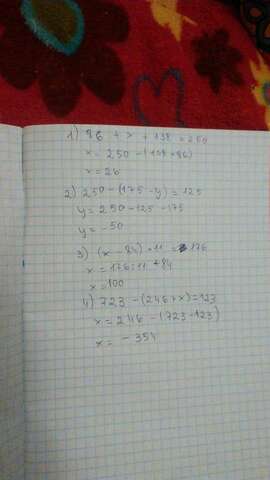 1) 86 + x + 138 = 250
x = 250 - (138 + 86)
x = 26
2) 250 - (175 - y) = 125
y = 250 - 125 - 175
y = -50
3) (x - 84) · 11 = 176
x = 176 : 11 + 84
x = 100
4) 723 - (246 + x) = 123
x = 246 - (723 - 123)
x = - 354